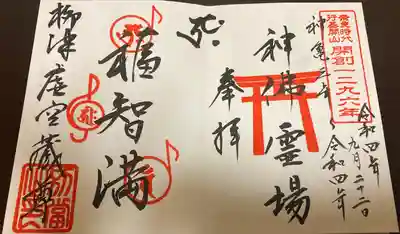 奈良時代
行基開山
開創一二九六年
令和四年
九月二十二日
神亀三年〜令和四年
神佛霊場
奉拝
福智満
柳津虚空蔵尊